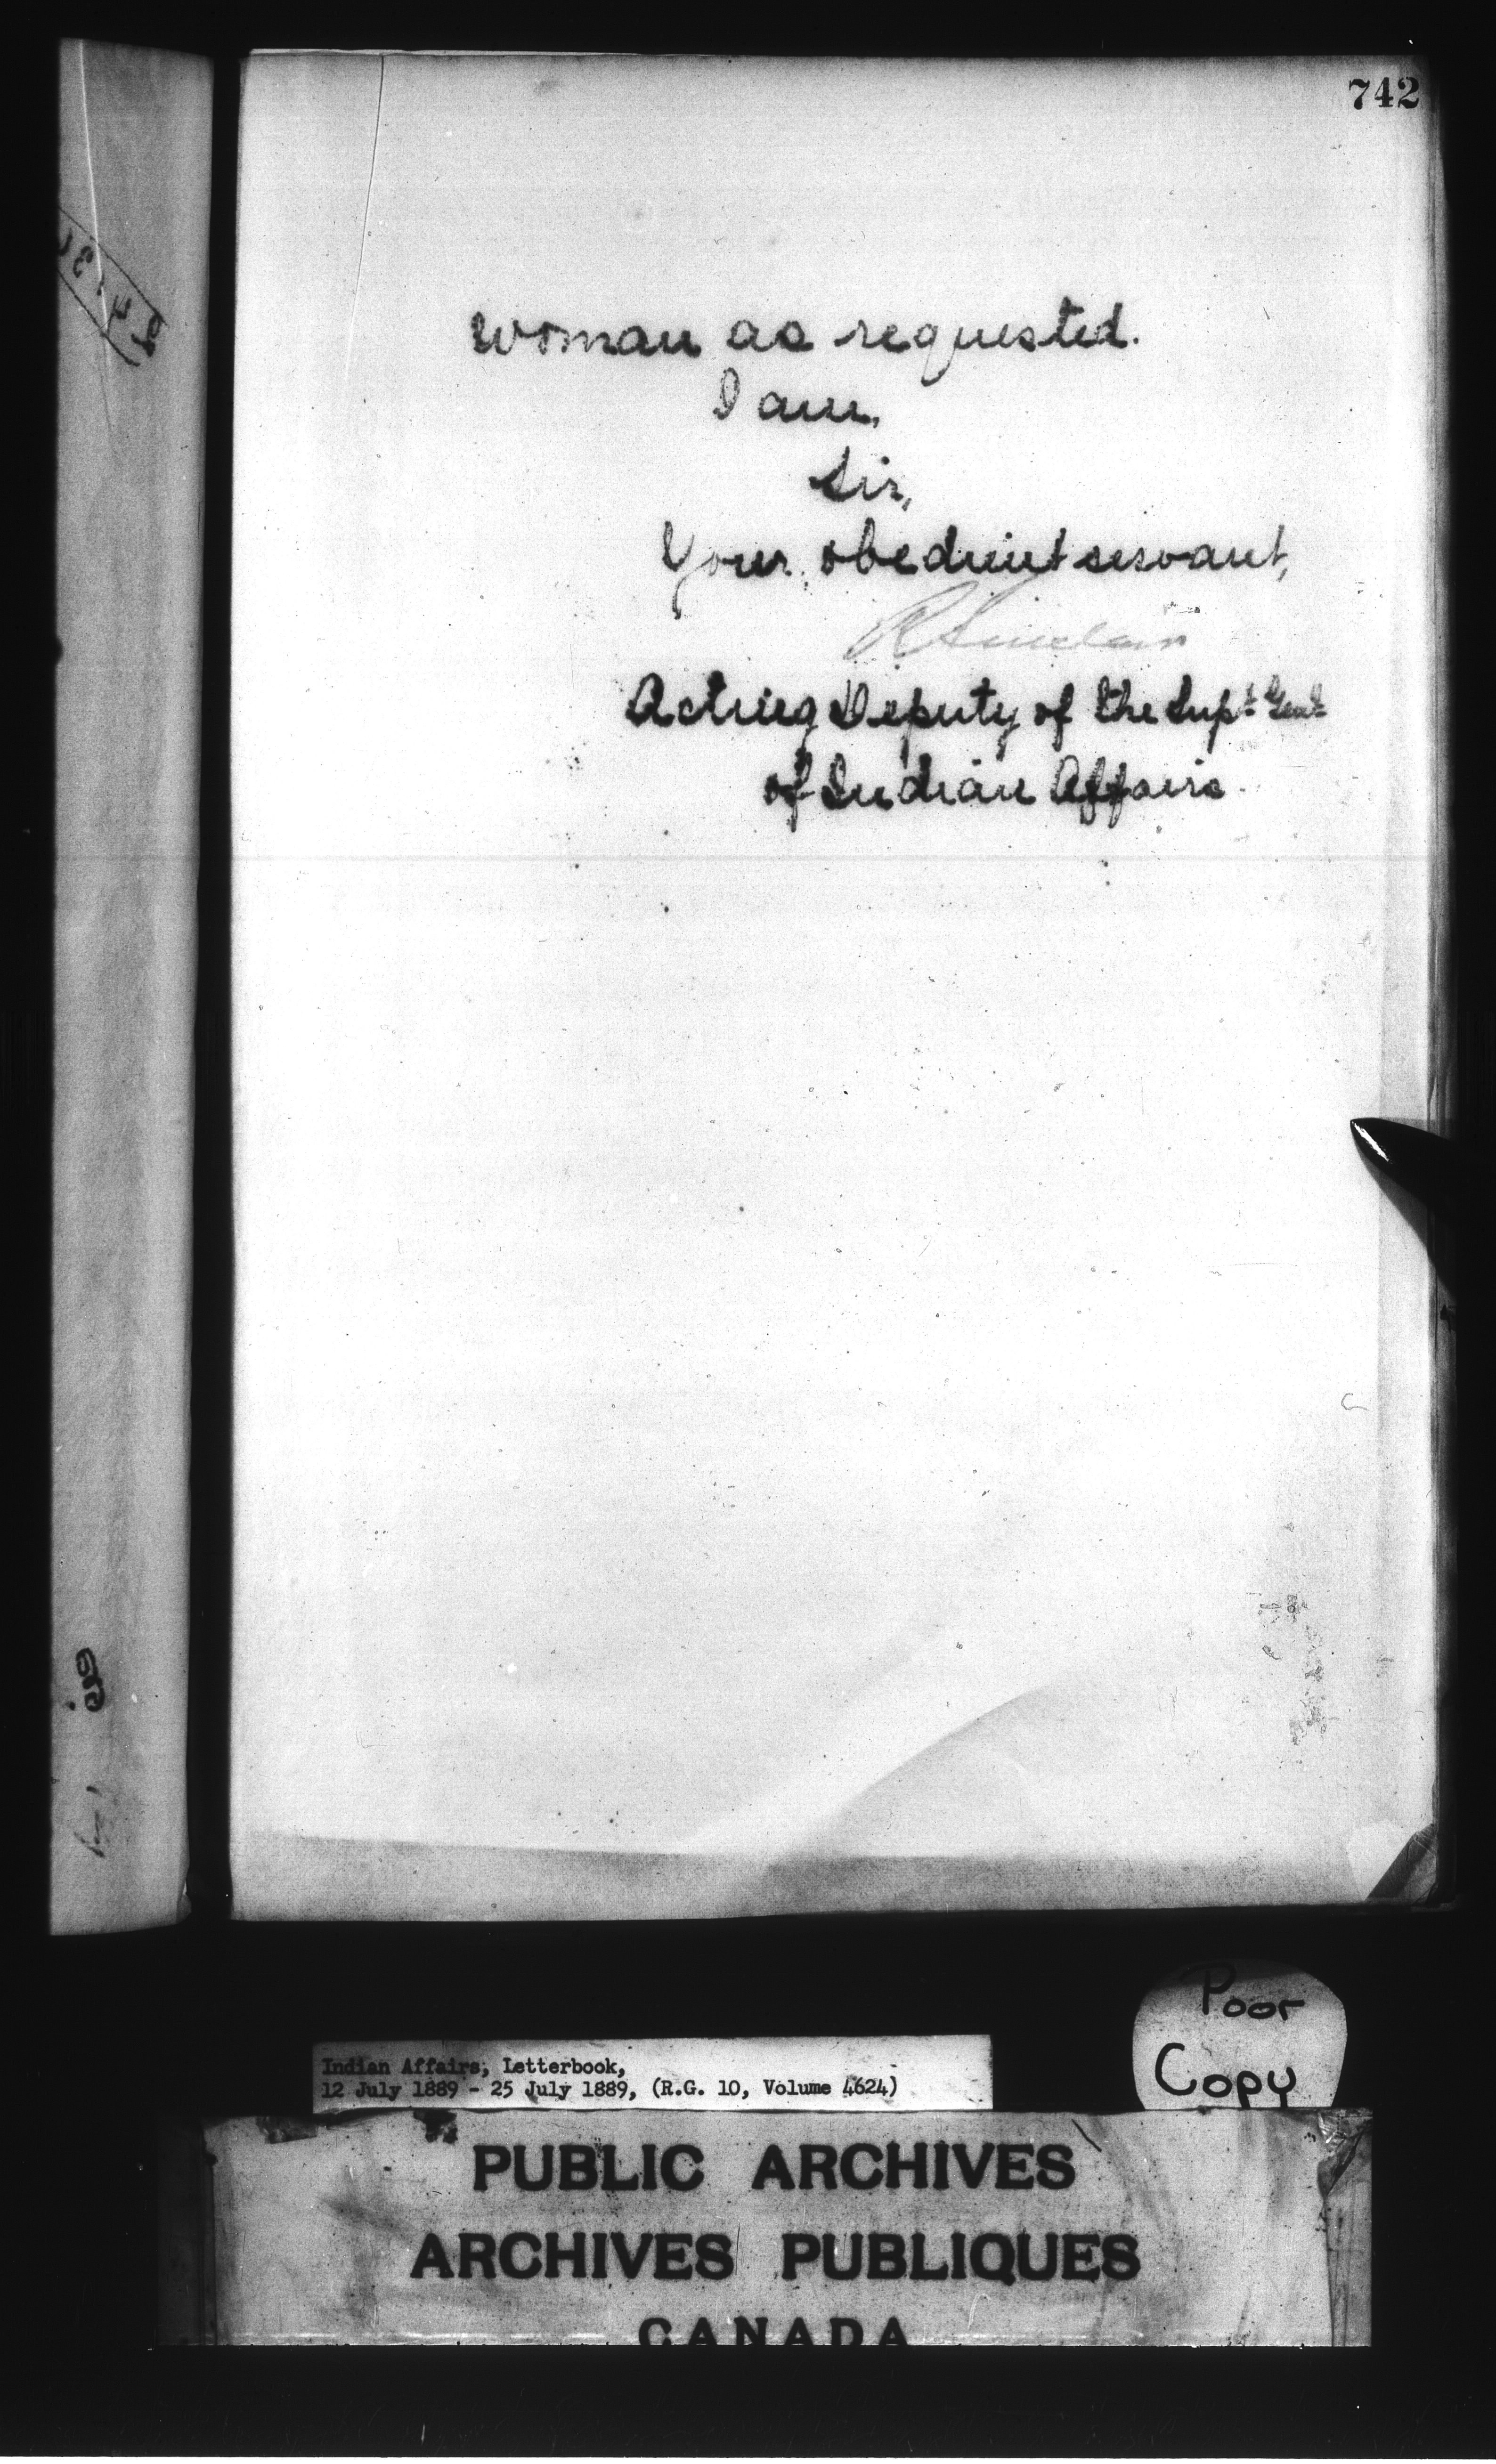 742
woman as requested.
I am,
Sir,
Your obedient servant,
R Sinclair
Acting Deputy of the Supt. Genl.
of Indian Affairs.
Poor
Copy
Indian Affairs, Letterbook,
12 July 1889 - 25 July 1889, (R.G. 10, Volume 4624)
PUBLIC ARCHIVES
ARCHIVES PUBLIQUES
CANADA